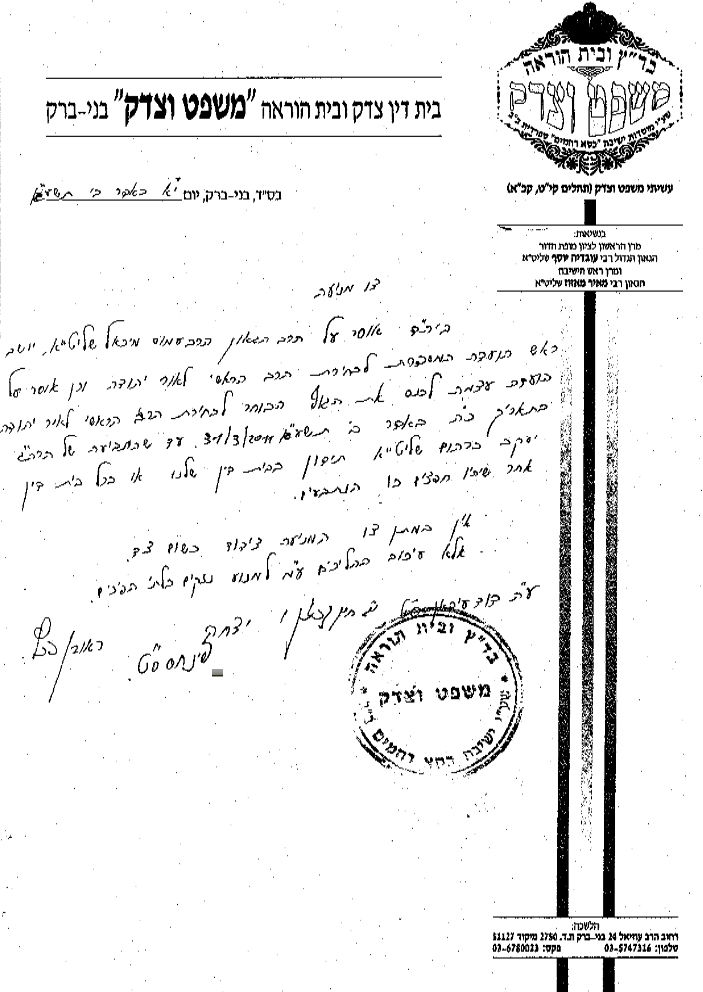 בד״ץ ובית הוראה
משפט וצדק
שע״י מוסדות ישיבת "כסא רחמים" ספרדית ב״ב
עשיתי משפט וצדק (תהלים קי״ט, קכ״א)
בית דין צדק ובית הוראה "משפט וצדק" בני-ברק
בס״ד, בני-ברק, יום י״א באדר ב׳ תשע״א
בנשיאות:
מרן הראשון לציון מופת הדור
הגאון הגדול רבי עובדיה יוסף שליט״א
ומרן ראש הישיבה
הגאון רבי מאיר מאזוז שליט״א
צו מניעה
ביה״ד אוסר על הרב הגאון הרב עמוס מיכאל שליט״א, יושב
ראש הועדה המסדרת לבחירת הרב הראשי לאור יהודה וכן אוסר על
הועדה עצמה לכנס את הגוף הבוחר לבחירת הרב הראשי לאור יהודה
בתאריך כ״ה באדר ב׳ תשע״א עד שהתביעה של הרה״ג
יעקב שליט״א תידון בבית דין שלנו או בכל בית דין
אחר שיהיו חפצים בו הנתבעים.
אין במתן צו המניעה צידוד בשום צד.
אלא עיכוב הליכים ע״מ למנוע נזקים בלתי הפיכים.
ע״ה
יצחק
פינחס ס״ט
ראובן
בד״ץ ובית הוראה
משפט וצדק
שע״י ישיבת רחמים ב״ב
הלשכה:
רחוב הרב עוזיאל 24 בני-ברק ת.ד. 2750 מיקוד 51127
טלפון: 03-5747316 פקס: 03-6780023